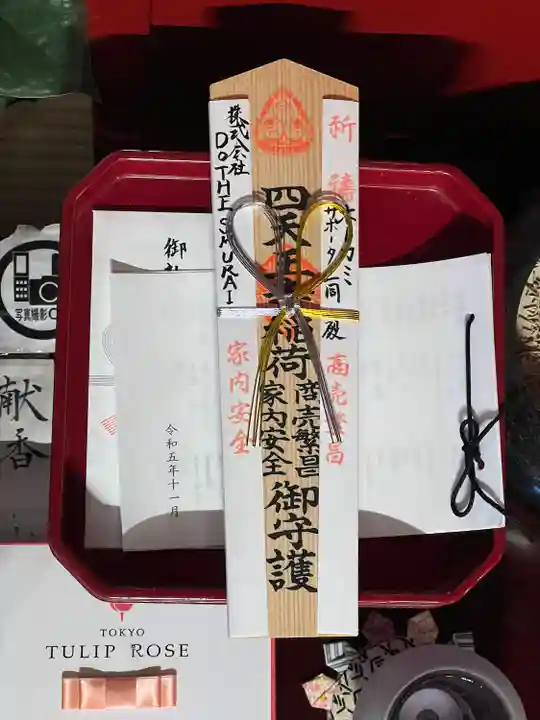 祈禱
株式会社
DO THE SAMURAI
サポーター一同 殿
四天王
稲荷
商売繁昌
家内安全
御守護
家内安全
商売繁昌
御
令和五年十一月
写真撮影O
献香
TOKYO
TULIP ROSE